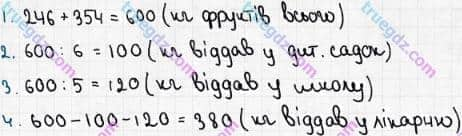 1. 246 + 354 = 600 (кг фруктів всього)
2. 600 : 6 = 100 (кг віддав у дит. садок)
3. 600 : 5 = 120 (кг віддав у школу)
4. 600 - 100 - 120 = 380 (кг віддав у лікарню)